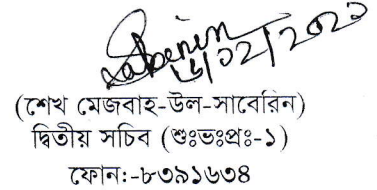 Saberin
১৫/০২/২০২১
(শেখ মেজবাহ-উল-সাবেরিন)
দ্বিতীয় সচিব (শুঃভঃপ্রঃ-১)
ফোন:-৮৩৯১৬৩৪